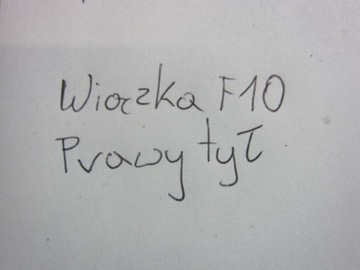 Wiązka F10
Prawy tył